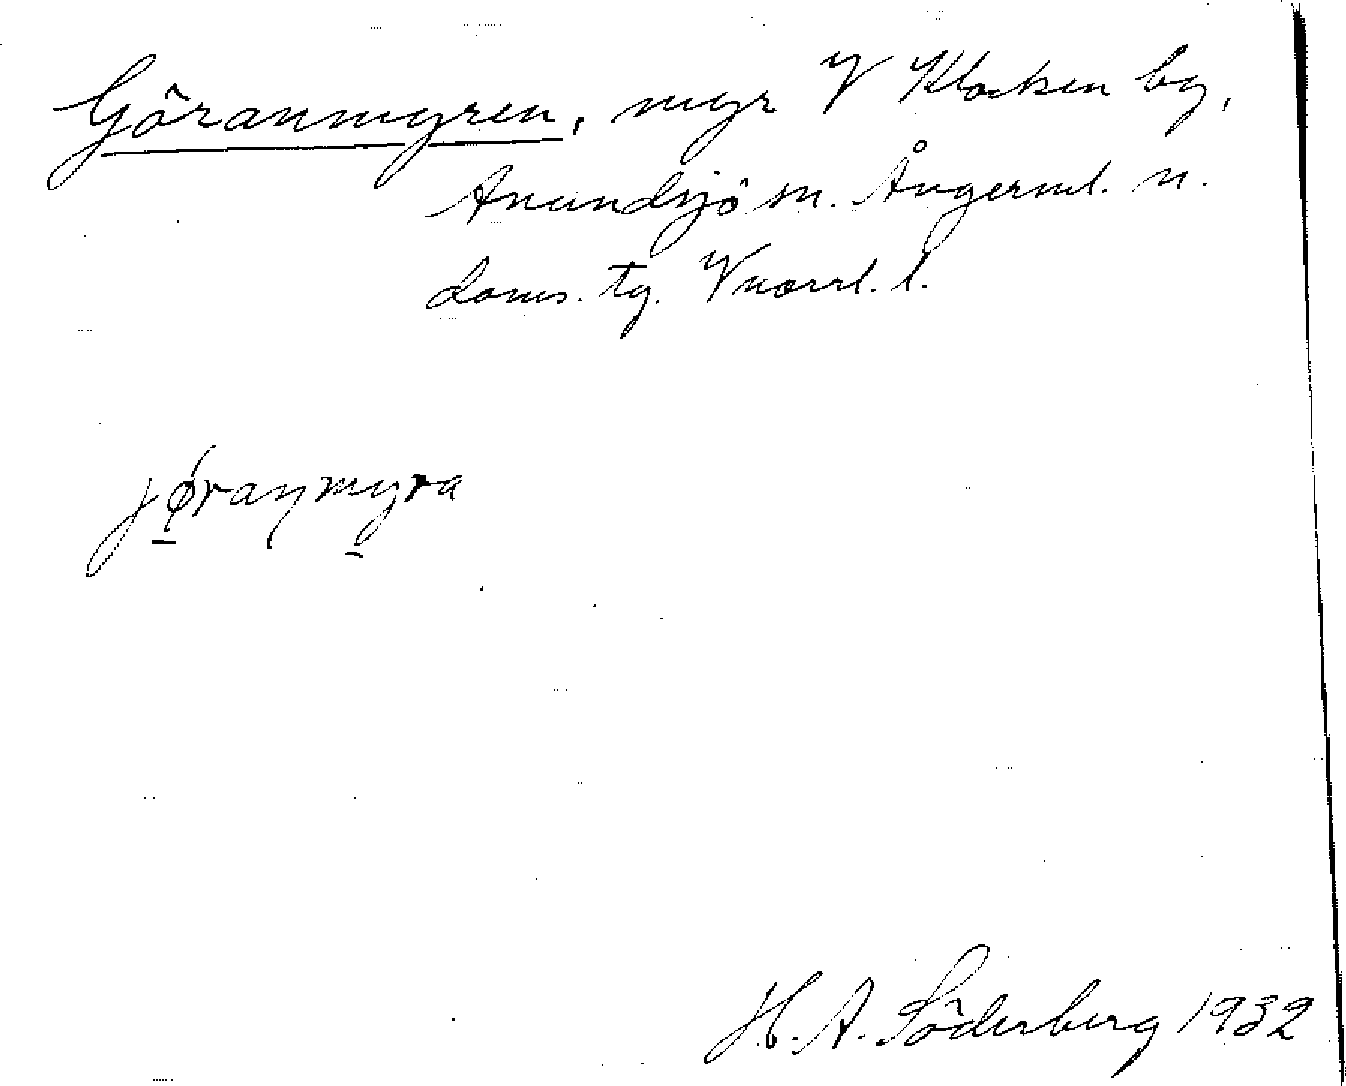 Göranmyren, myr V Klocken by,
Anundsjö sn. Ångerml. n.
doms. tg. Vnorrl. l.
jøranmyra
H. A. Söderberg 1932